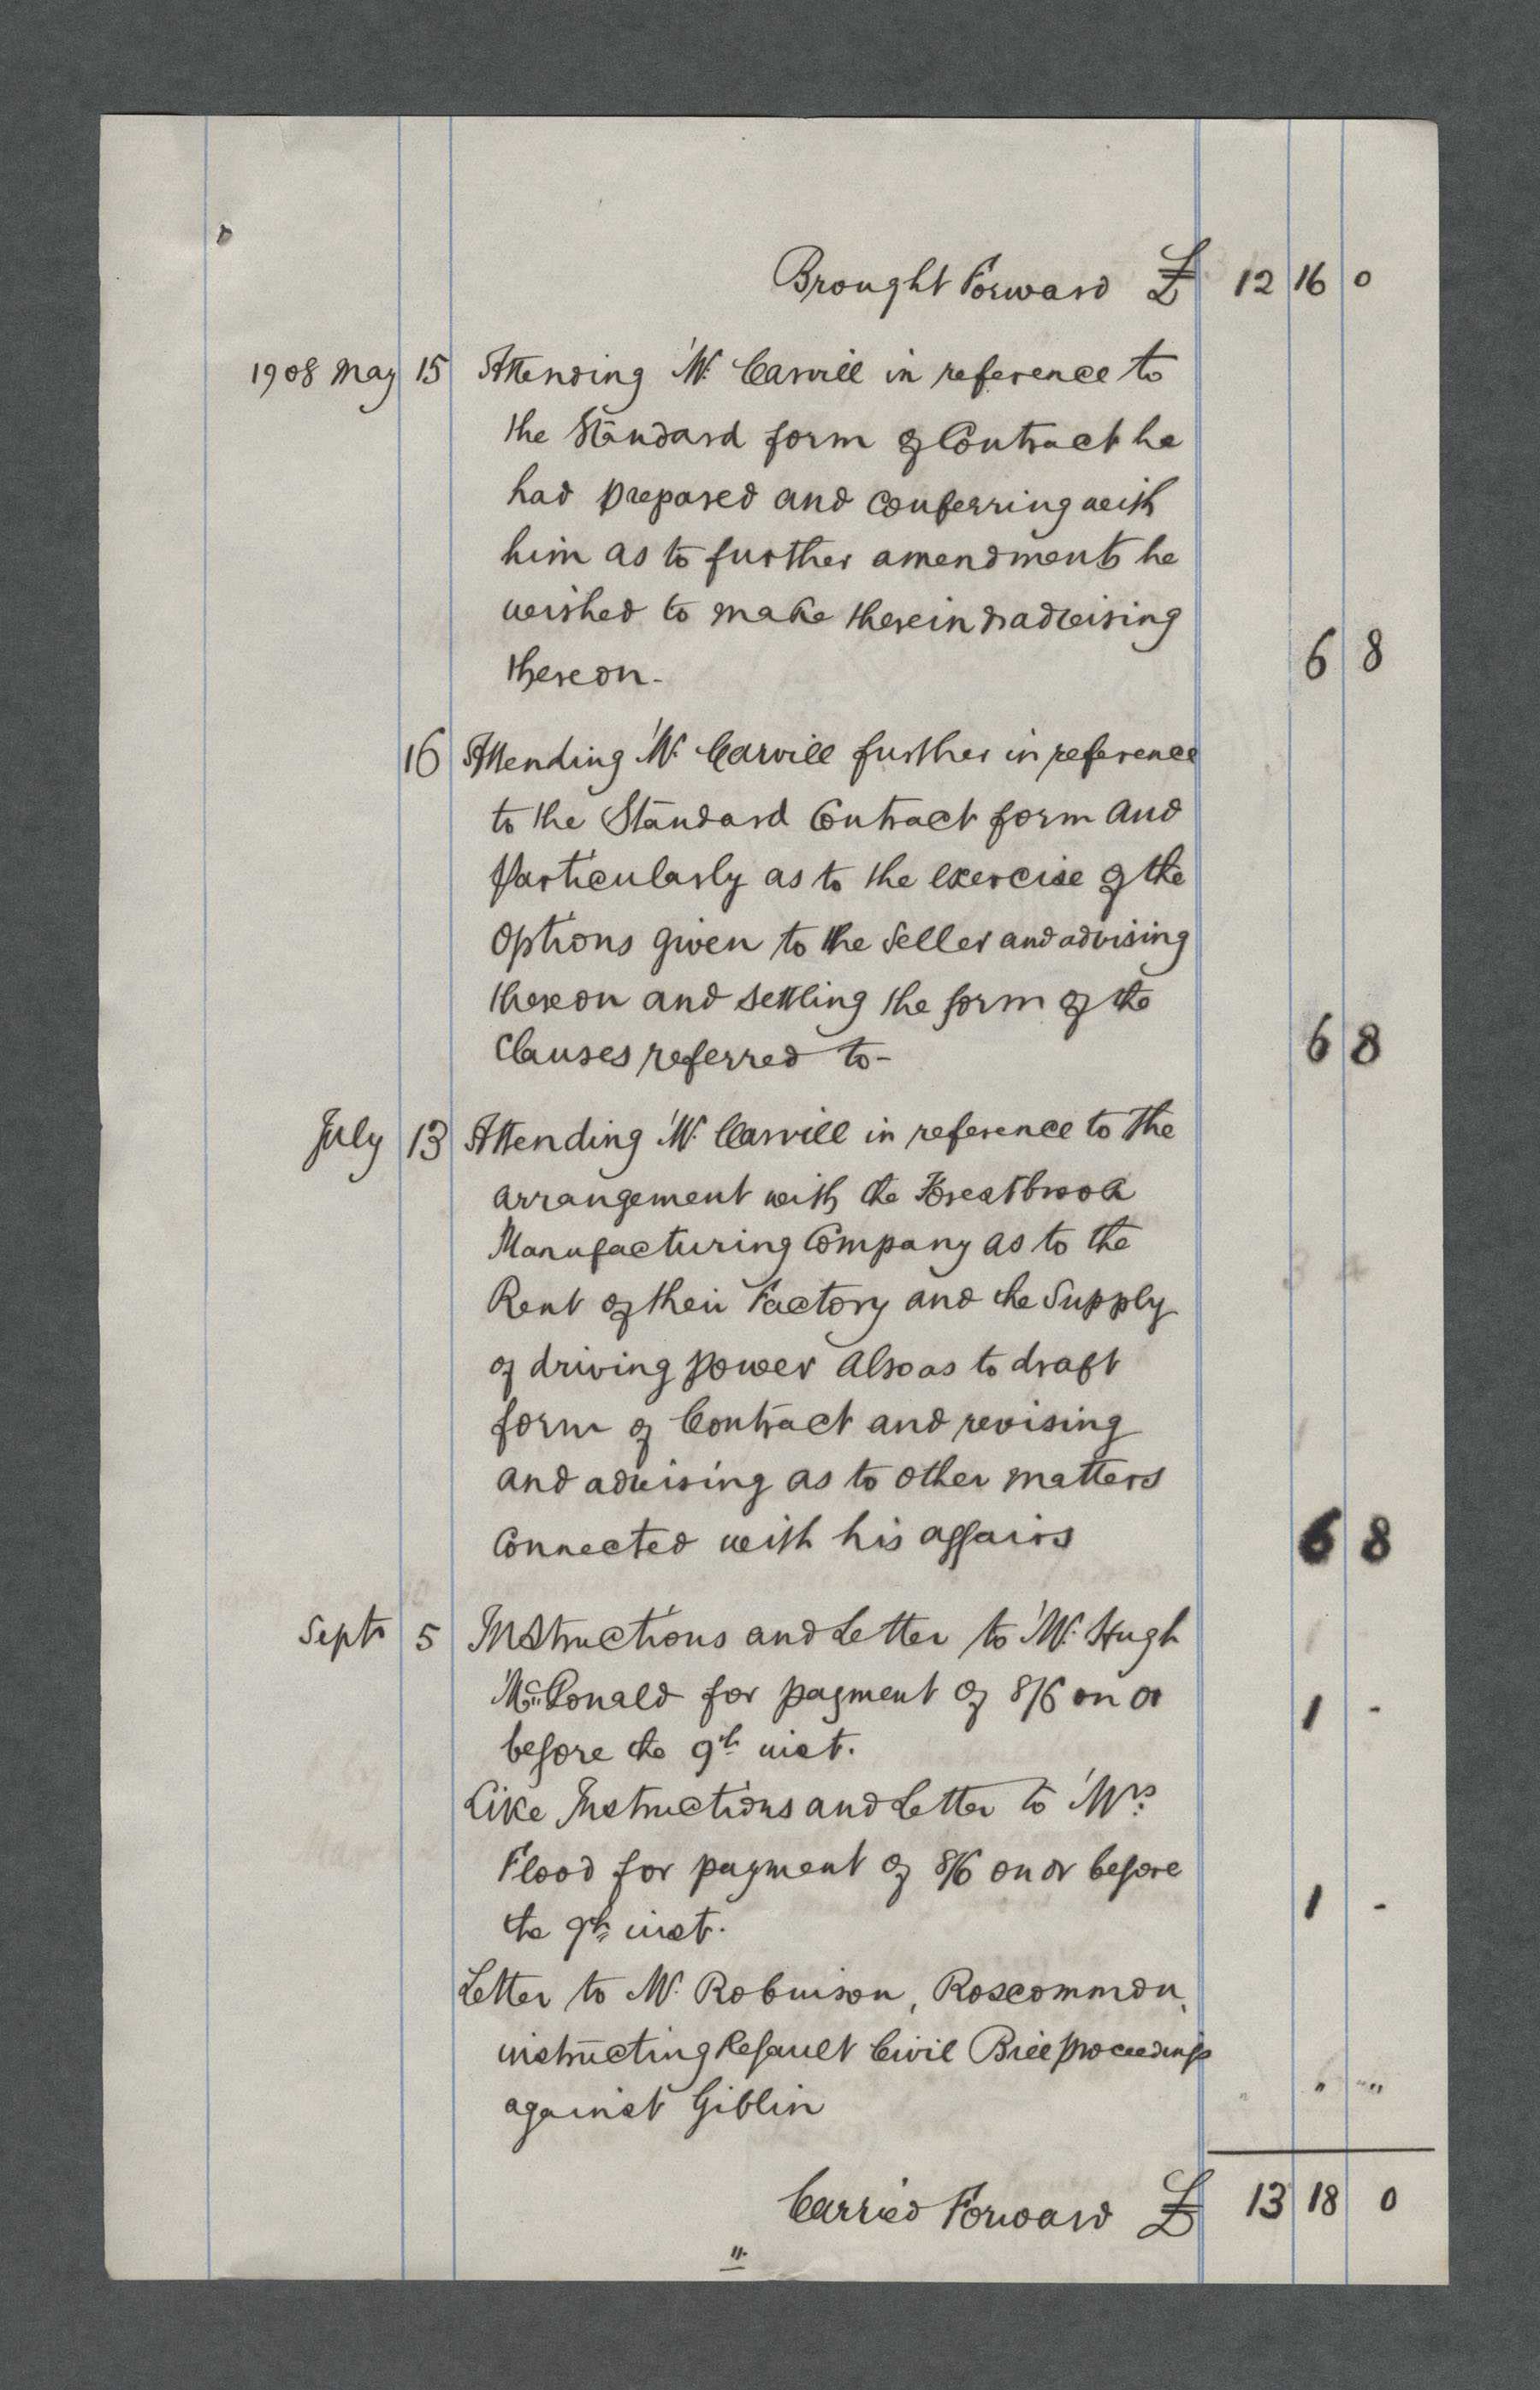 Brought Forward £ 12 16 0
1908 May 15 Attending Mr. Carvill in reference to
the Standard form of Contract he
had prepared and conferring with
him as to further amendments he
wished to make therein & advising
thereon - 6 8
16 Attending Mr. Carvill further in reference
to the Standard Contract form and
particularly as to the exercise of the
options given to the seller and advising
thereon and settling the form of the
clauses referred to - 6 8
July 13 Attending Mr. Carvill in reference to the
arrangement with the Forestbrook
Manufacturing Company as to the
Rent of their Factory and the Supply
of driving power Also as to draft
form of Contract and revising
and advising as to other matters
connected with his affairs 6 8
Septr 5 Instructions and Letter to Mr. Hugh
McDonald for payment of 8/6 on or 1 -
before the 9th inst.
Like Instructions and Letter to Mrs.
Flood for payment of 8/6 on or before
the 9th inst. 1 -
Letter to Mr. Robinson, Roscommon,
instructing Default Civil Bill proceedings
against Giblin " " "
Carried Forward £ 13 18 0
11.